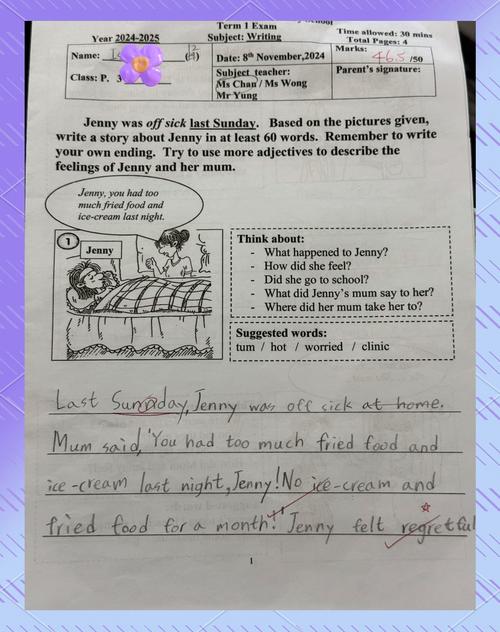 Term 1 Exam
Year 2024-2025
Subject: Writing
Time allowed: 30 mins
Total Pages: 4
Name:
Class: P. 3
Date: 8th November,2024
Subject teacher:
Ms Chan / Ms Wong
Mr Yung
Marks:
46.5 /50
Parent's signature:
Jenny was off sick last Sunday. Based on the pictures given,
write a story about Jenny in at least 60 words. Remember to write
your own ending. Try to use more adjectives to describe the
feelings of Jenny and her mum.
Jenny, you had too
much fried food and
ice-cream last night.
1
Jenny
Think about:
- What happened to Jenny?
- How did she feel?
- Did she go to school?
- What did Jenny's mum say to her?
- Where did her mum take her to?
Suggested words:
tum / hot / worried / clinic
Last Sunday, Jenny was off sick at home.
Mum said, 'You had too much fried food and
ice-cream last night, Jenny! No ice-cream and
fried food for a month!' Jenny felt regretful
1